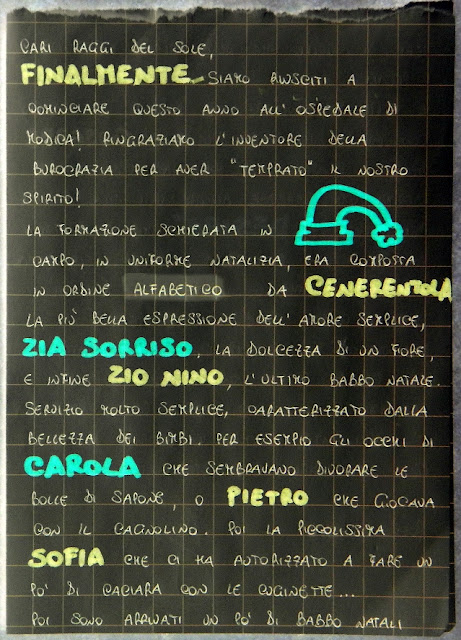 CARI RAGGI DEL SOLE,
FINALMENTE SIAMO RIUSCITI A
COMINCIARE QUESTO ANNO ALL'OSPEDALE DI
MODICA! RINGRAZIAMO L'INVENTORE DELLA
BUROCRAZIA PER AVER "TEMPRATO" IL NOSTRO
SPIRITO!
LA FORMAZIONE SCHIERATA IN
CAMPO, IN UNIFORME NATALIZIA, ERA COMPOSTA
IN ORDINE ALFABETICO DA CENERENTOLA
LA PIÙ BELLA ESPRESSIONE DELL'AMORE SEMPLICE,
ZIA SORRISO, LA DOLCEZZA DI UN FIORE,
E INFINE ZIO NINO, L'ULTIMO BABBO NATALE.
SERVIZIO MOLTO SEMPLICE, CARATTERIZZATO DALLA
BELLEZZA DEI BIMBI. PER ESEMPIO GLI OCCHI DI
CAROLA CHE SEMBRAVANO DIVORARE LE
BOLLE DI SAPONE, O PIETRO CHE GIOCAVA
CON IL CAGNOLINO. POI LA PICCOLISSIMA
SOFIA CHE CI HA AUTORIZZATO A FARE UN
PO' DI CACIARA CON LE CUGINETTE...
POI SONO ARRIVATI UN PO' DI BABBO NATALI